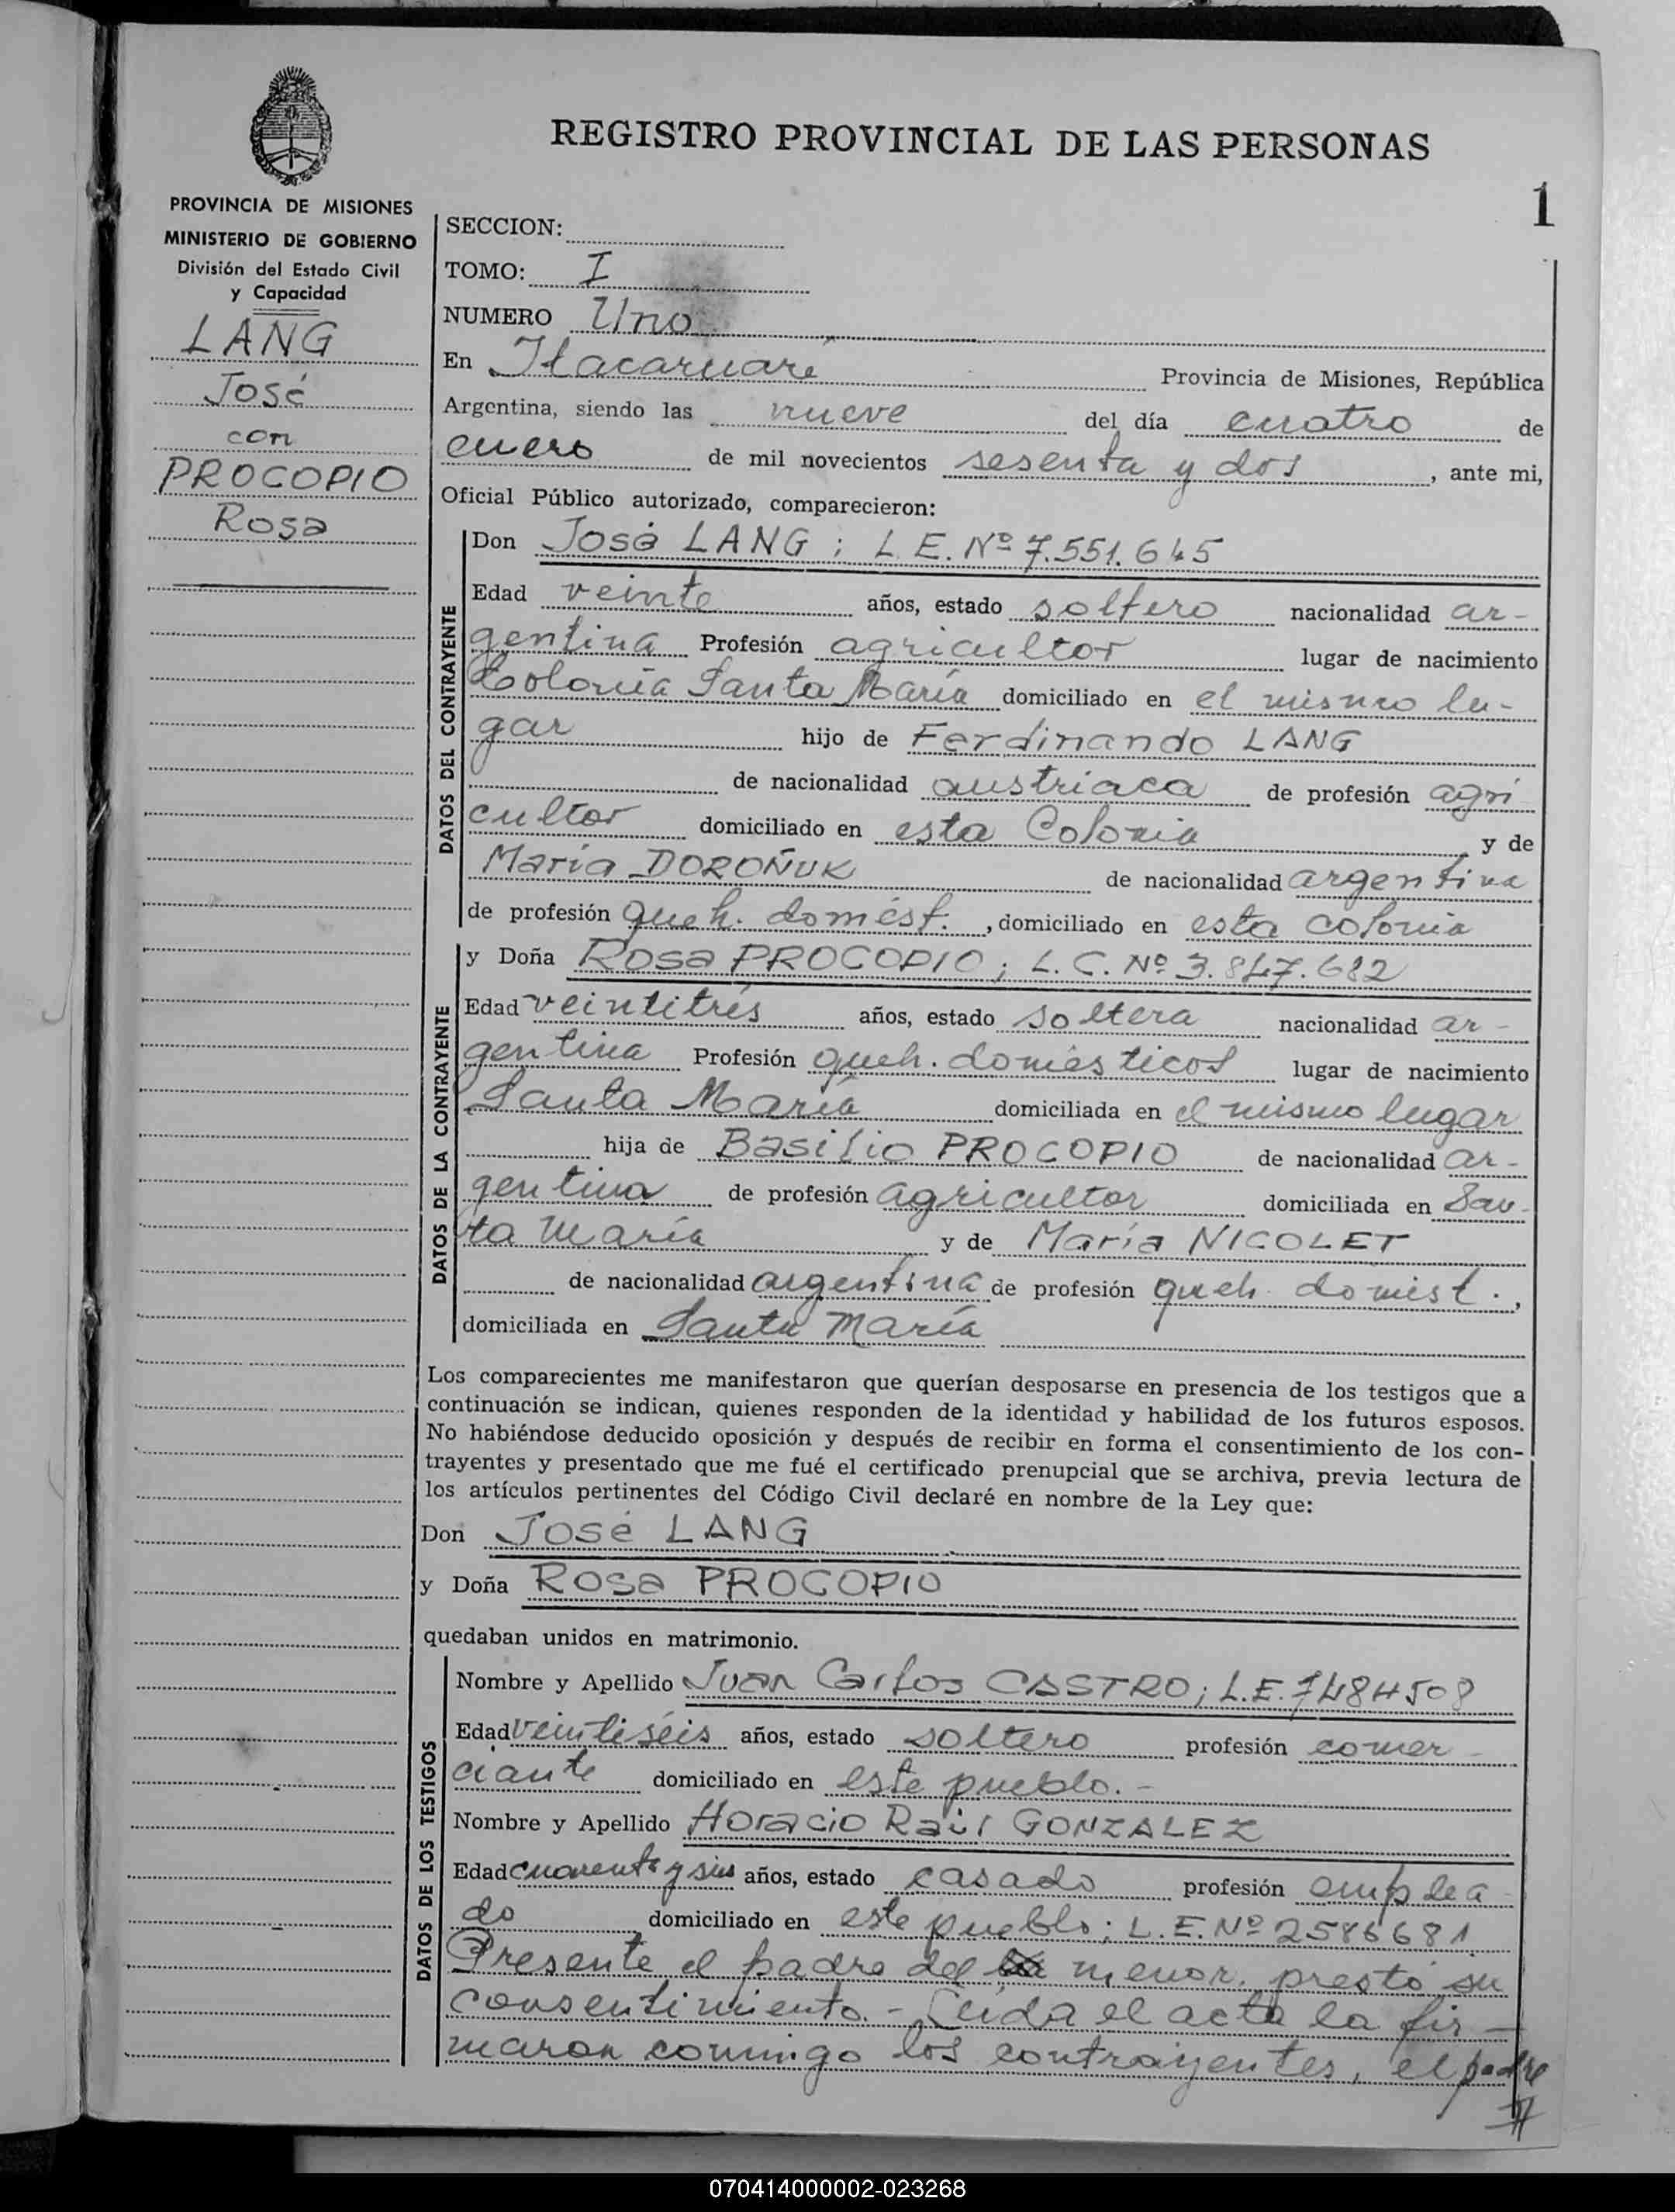 REGISTRO PROVINCIAL DE LAS PERSONAS
1
PROVINCIA DE MISIONES
MINISTERIO DE GOBIERNO
División del Estado Civil
y Capacidad
LANG
José
con
PROCOPIO
Rosa
SECCION:
TOMO: I
NUMERO Uno
En Itacaruaré Provincia de Misiones, República
Argentina, siendo las nueve del día cuatro de
enero de mil novecientos sesenta y dos, ante mi,
Oficial Público autorizado, comparecieron:
DATOS DEL CONTRAYENTE
Don José LANG; L.E. Nº 7.551.645
Edad veinte años, estado soltero nacionalidad ar-
gentina Profesión agricultor lugar de nacimiento
Colonia Santa María domiciliado en el mismo lu-
gar hijo de Ferdinando LANG
de nacionalidad austriaca de profesión agri
cultor domiciliado en esta Colonia y de
María DOROÑUK de nacionalidad argentina
de profesión queh. domést., domiciliado en esta colonia
DATOS DE LA CONTRAYENTE
y Doña Rosa PROCOPIO; L.C. Nº 3.847.682
Edad veintitrés años, estado soltera nacionalidad ar-
gentina Profesión queh. domésticos lugar de nacimiento
Santa María domiciliada en el mismo lugar
hija de Basilio PROCOPIO de nacionalidad ar-
gentina de profesión agricultor domiciliada en San-
ta María y de María NICOLET
de nacionalidad argentina de profesión queh. domést.,
domiciliada en Santa María
Los comparecientes me manifestaron que querían desposarse en presencia de los testigos que a
continuación se indican, quienes responden de la identidad y habilidad de los futuros esposos.
No habiéndose deducido oposición y después de recibir en forma el consentimiento de los con-
trayentes y presentado que me fué el certificado prenupcial que se archiva, previa lectura de
los artículos pertinentes del Código Civil declaré en nombre de la Ley que:
Don José LANG
y Doña Rosa PROCOPIO
quedaban unidos en matrimonio.
DATOS DE LOS TESTIGOS
Nombre y Apellido Juan Carlos CASTRO; L.E. 7484508
Edad veintiséis años, estado soltero profesión comer-
ciante domiciliado en este pueblo.-
Nombre y Apellido Horacio Raúl GONZALEZ
Edad cuarenta y seis años, estado casado profesión emplea-
do domiciliado en este pueblo; L.E. Nº 2586681
Presente el padre del menor, prestó su
consentimiento.- Leída el acta la fir-
maron conmigo los contrayentes, el padre
070414000002-023268